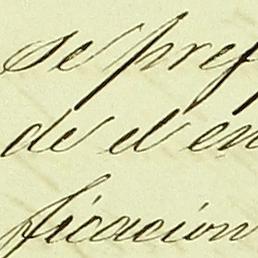 se pref
de el en
ficacion